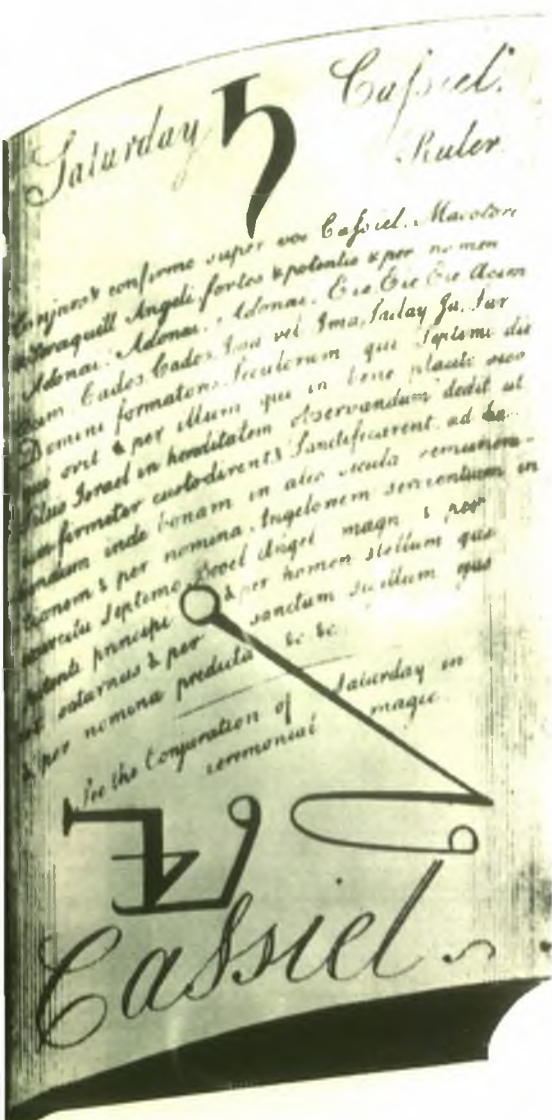 Saturday ♄ Caſsiel.
Ruler
Conjuro & confirmo super vos Caſsiel. Macatori
& Seraquiel Angeli fortes & potentis & per nomen
Adonai. Adonai. Adonai. Eie Eie Eie Acim
Acim Cados Cados Ima vel Ima, Saclay Ja, Sar
Domini formatoris Seculorum qui Septimo die
& per illum qui in bene placito suo
filiis Israel in hereditatem observandum dedit ut
eum firmiter custodirent & Sanctificarent. ad
inde bonam in alio secula remuner-
ationem & per nomina Angelorum servientium in
exercitu septimo Booel Angel magn & per
potenti principi & per nomen stellum quæ
est saturnus & per sanctum sigillum quæ
& per nomina predicta &c &c.
See the Conjuration of Saturday in
ceremonial magic
Caſsiel.